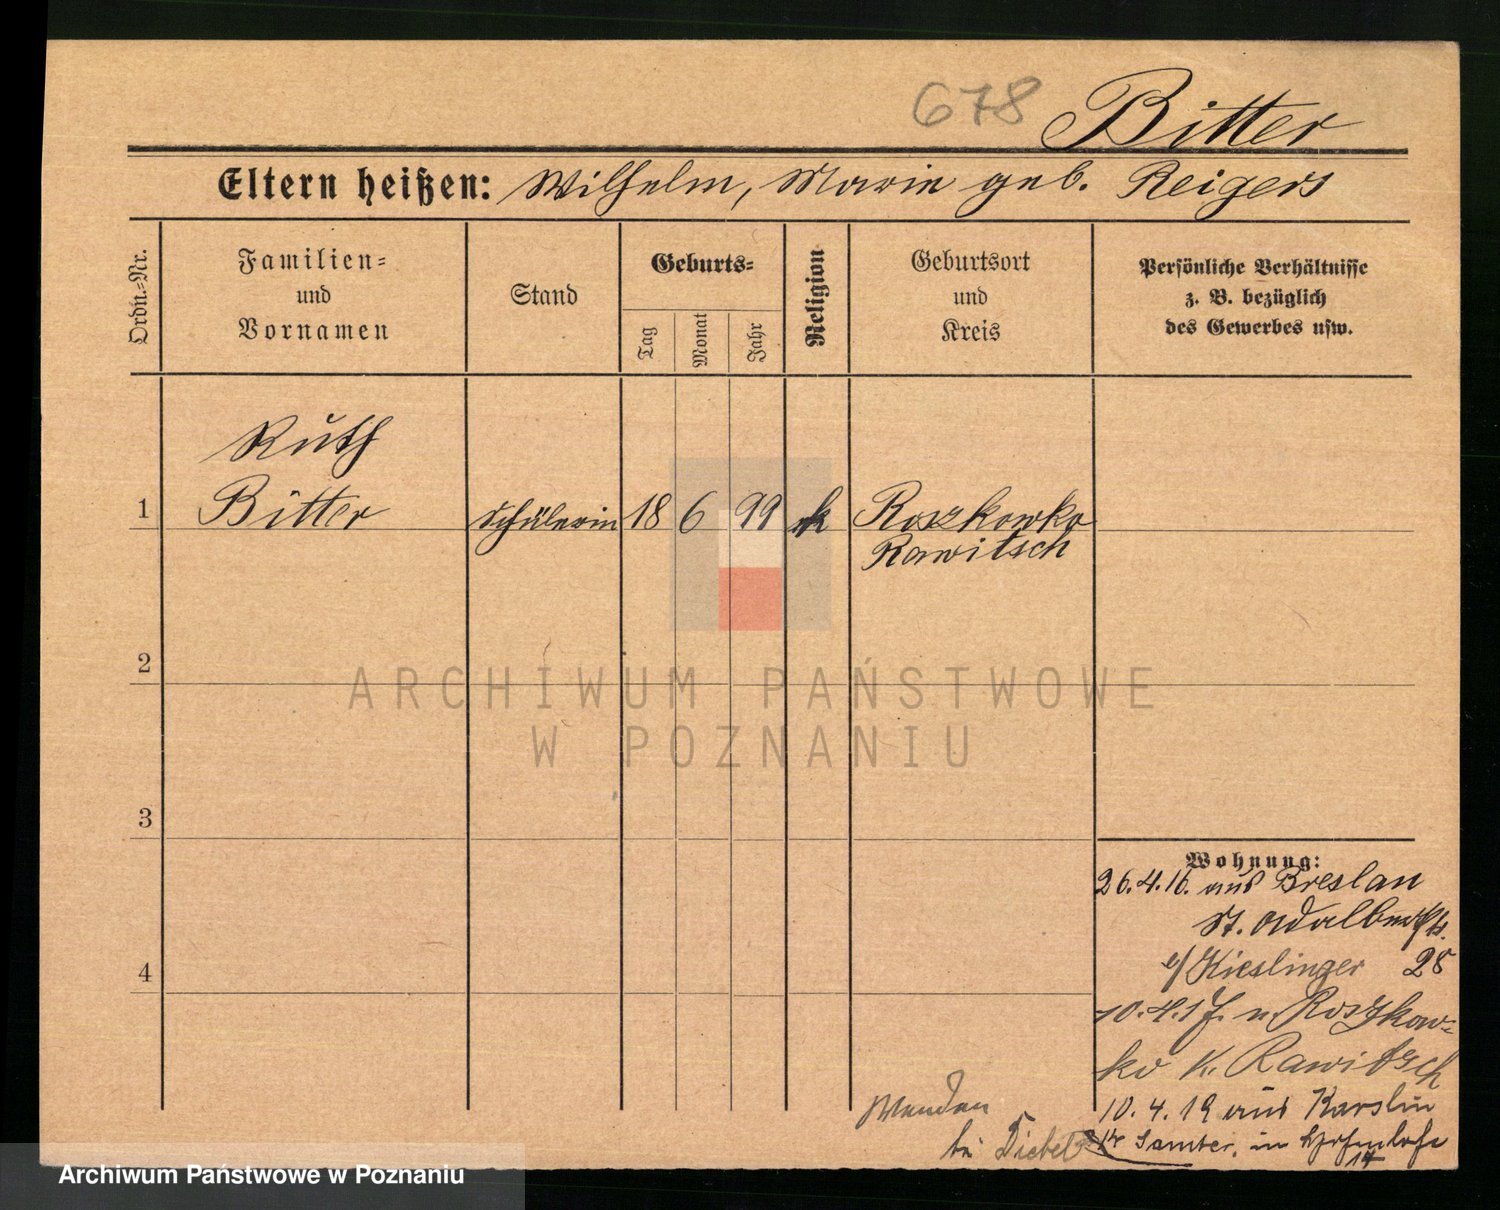 678 Bitter
Eltern heißen: Wilhelm, Marie geb. Reigers
Ordn.-Nr.
Familien-
und
Vornamen
Stand
Geburts-
Tag
Monat
Jahr
Religion
Geburtsort
und
Kreis
Persönliche Verhältnisse
z. B. bezüglich
des Gewerbes usw.
Ruth
1 Bitter Schülerin 18 6 99 rk Roszkowko
Rawitsch
2
3
4
Wohnung:
26.4.16. aus Breslau
St. Adalbertstr.
b/ Kieslinger 28
10.4.17. n. Roszkow-
ko K. Rawitsch
10.4.19 aus
Kr Samter, in
14
bei
ARCHIWUM PAŃSTWOWE
W POZNANIU
Archiwum Państwowe w Poznaniu